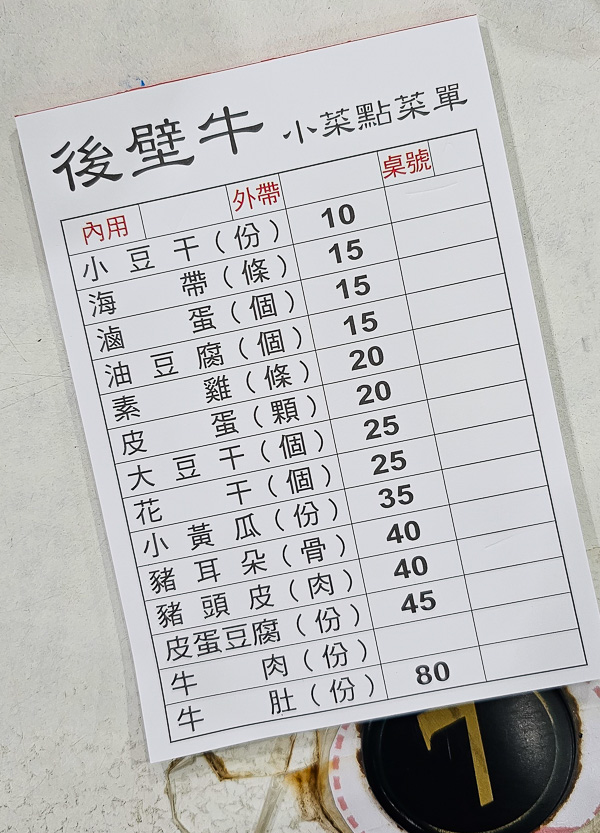 後壁牛 小菜點菜單
內用 外帶 桌號
小豆干(份) 10
海帶(條) 15
滷蛋(個) 15
油豆腐(個) 15
素雞(條) 20
皮蛋(顆) 20
大豆干(個) 25
花干(個) 25
小黃瓜(份) 35
豬耳朵(骨) 40
豬頭皮(肉) 40
皮蛋豆腐(份) 45
牛肉(份)
牛肚(份) 80
7